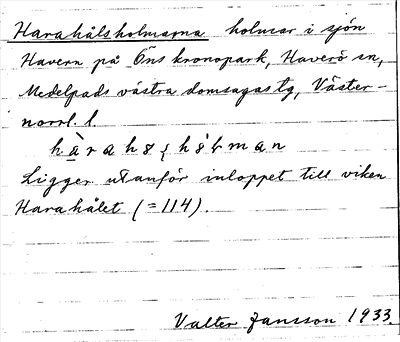 Harahålsholmarna holmar i sjön
Havern på Öns kronopark, Haverö sn,
Medelpads västra domsagas tg, Väster-
norrl. l.
Ligger utanför inloppet till viken
Harahålet (=114).
Valter Jansson 1933.